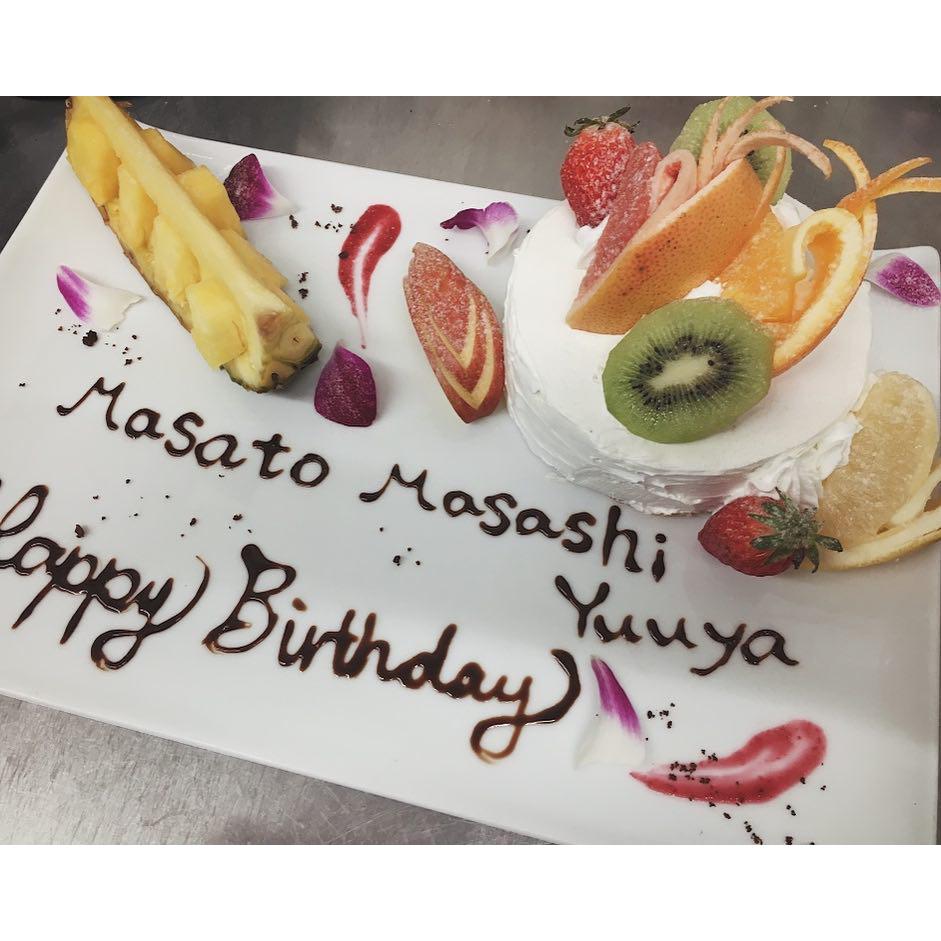 Masato Masashi
Yuuya
Happy Birthday